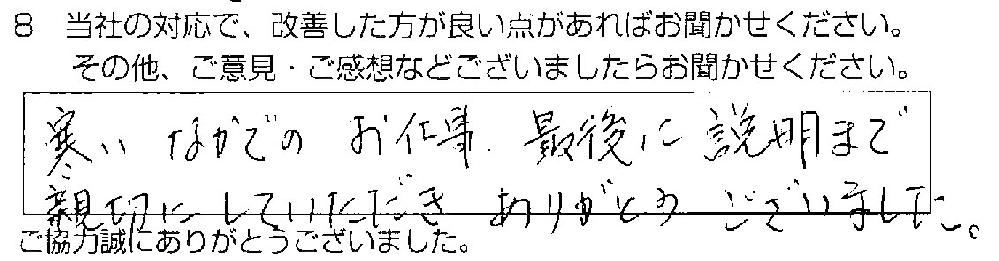 8 当社の対応で、改善した方が良い点があればお聞かせください。
その他、ご意見・ご感想などございましたらお聞かせください。
寒い なかでの お仕事、最後に 説明まで
親切にしていただき ありがとう ございました。
ご協力誠にありがとうございました。